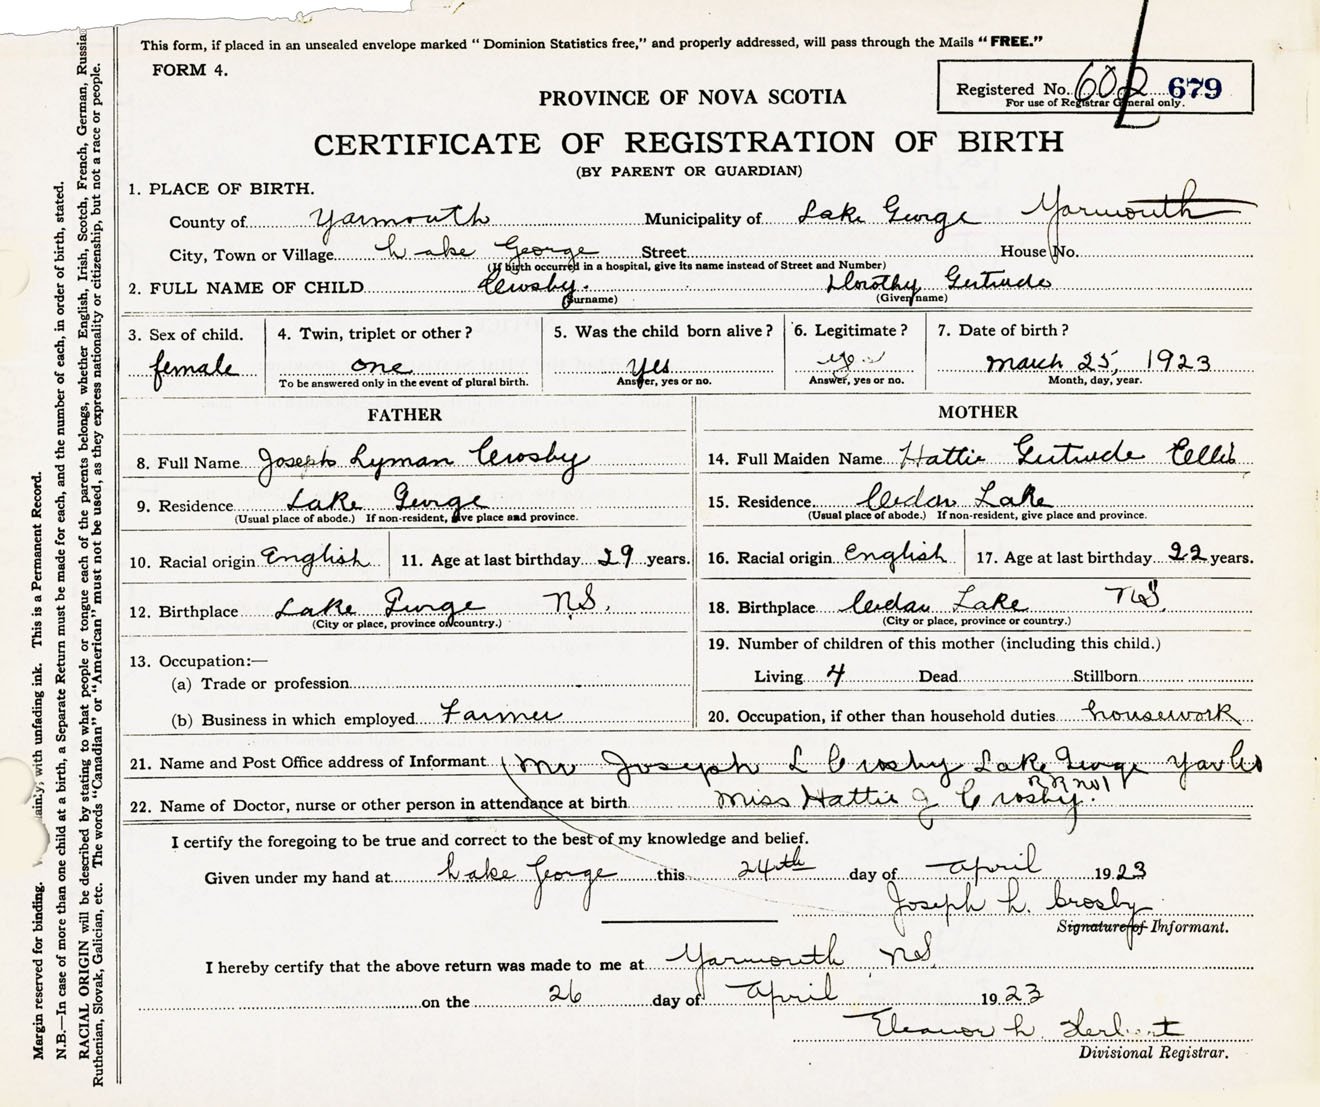 This form, if placed in an unsealed envelope marked "Dominion Statistics free," and properly addressed, will pass through the Mails "FREE."
FORM 4.
Registered No. 602 679
For use of Registrar General only.
PROVINCE OF NOVA SCOTIA
CERTIFICATE OF REGISTRATION OF BIRTH
(BY PARENT OR GUARDIAN)
1. PLACE OF BIRTH.
County of Yarmouth Municipality of Lake George Yarmouth
City, Town or Village Lake George Street House No.
(If birth occurred in a hospital, give its name instead of Street and Number)
2. FULL NAME OF CHILD Crosby. Dorothy Gertrude
(Surname) (Given name)
3. Sex of child. 4. Twin, triplet or other? 5. Was the child born alive? 6. Legitimate? 7. Date of birth?
female one yes yes March 25, 1923
To be answered only in the event of plural birth. Answer, yes or no. Answer, yes or no. Month, day, year.
FATHER MOTHER
8. Full Name Joseph Lyman Crosby 14. Full Maiden Name Hattie Gertrude Ellis
9. Residence Lake George 15. Residence Cedar Lake
(Usual place of abode.) If non-resident, give place and province. (Usual place of abode.) If non-resident, give place and province.
10. Racial origin English 11. Age at last birthday 29 years. 16. Racial origin English 17. Age at last birthday 22 years.
12. Birthplace Lake George N.S. 18. Birthplace Cedar Lake N.S.
(City or place, province or country.) (City or place, province or country.)
19. Number of children of this mother (including this child.)
13. Occupation:—
(a) Trade or profession Living 4 Dead Stillborn
(b) Business in which employed Farmer 20. Occupation, if other than household duties housework
21. Name and Post Office address of Informant Mr Joseph L Crosby Lake George
RR no 1
22. Name of Doctor, nurse or other person in attendance at birth Miss Hattie J Crosby.
I certify the foregoing to be true and correct to the best of my knowledge and belief.
Given under my hand at Lake George this 24th day of April 1923
Joseph L. Crosby
Signature of Informant.
I hereby certify that the above return was made to me at Yarmouth N.S.
on the 26 day of April 1923
Eleanor L. Herbert
Divisional Registrar.
Margin reserved for binding. with unfading ink. This is a Permanent Record.
N.B.—In case of more than one child at a birth, a Separate Return must be made for each, and the number of each, in order of birth, stated.
RACIAL ORIGIN will be described by stating to what people or tongue each of the parents belongs, whether English, Irish, Scotch, French, German, Russian
Ruthenian, Slovak, Galician, etc. The words "Canadian" or "American" must not be used, as they express nationality or citizenship, but not a race or people.